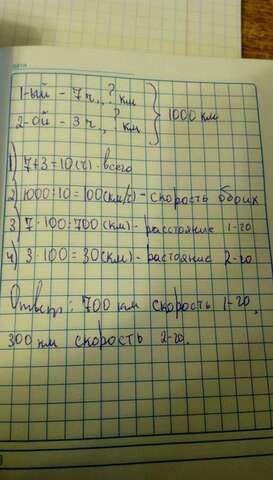 1-ый - 7 ч., ? км
1000 км
2-ой - 3 ч., ? км
1) 7+3=10(ч)-всего
2) 1000:10=100(км/ч)-скорость обоих
3) 7·100=700(км)-расстояние 1-го
4) 3·100=30(км)-растояние 2-го
Ответ: 700 км скорость 1-го,
300 км скорость 2-го.